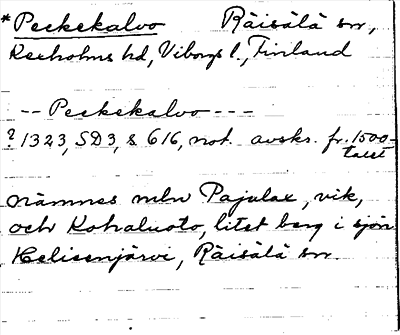 *Peckekalvo Räisälä sn,
Kexholms hd, Viborgs l., Finland
-- Peckekalvo ---
? 1323, SD3, s. 616, not. avskr. fr. 1500-
talet
nämnes mln Pajulax, vik,
och Kohaluoto, litet berg i sjön
Helisenjärvi, Räisälä sn.